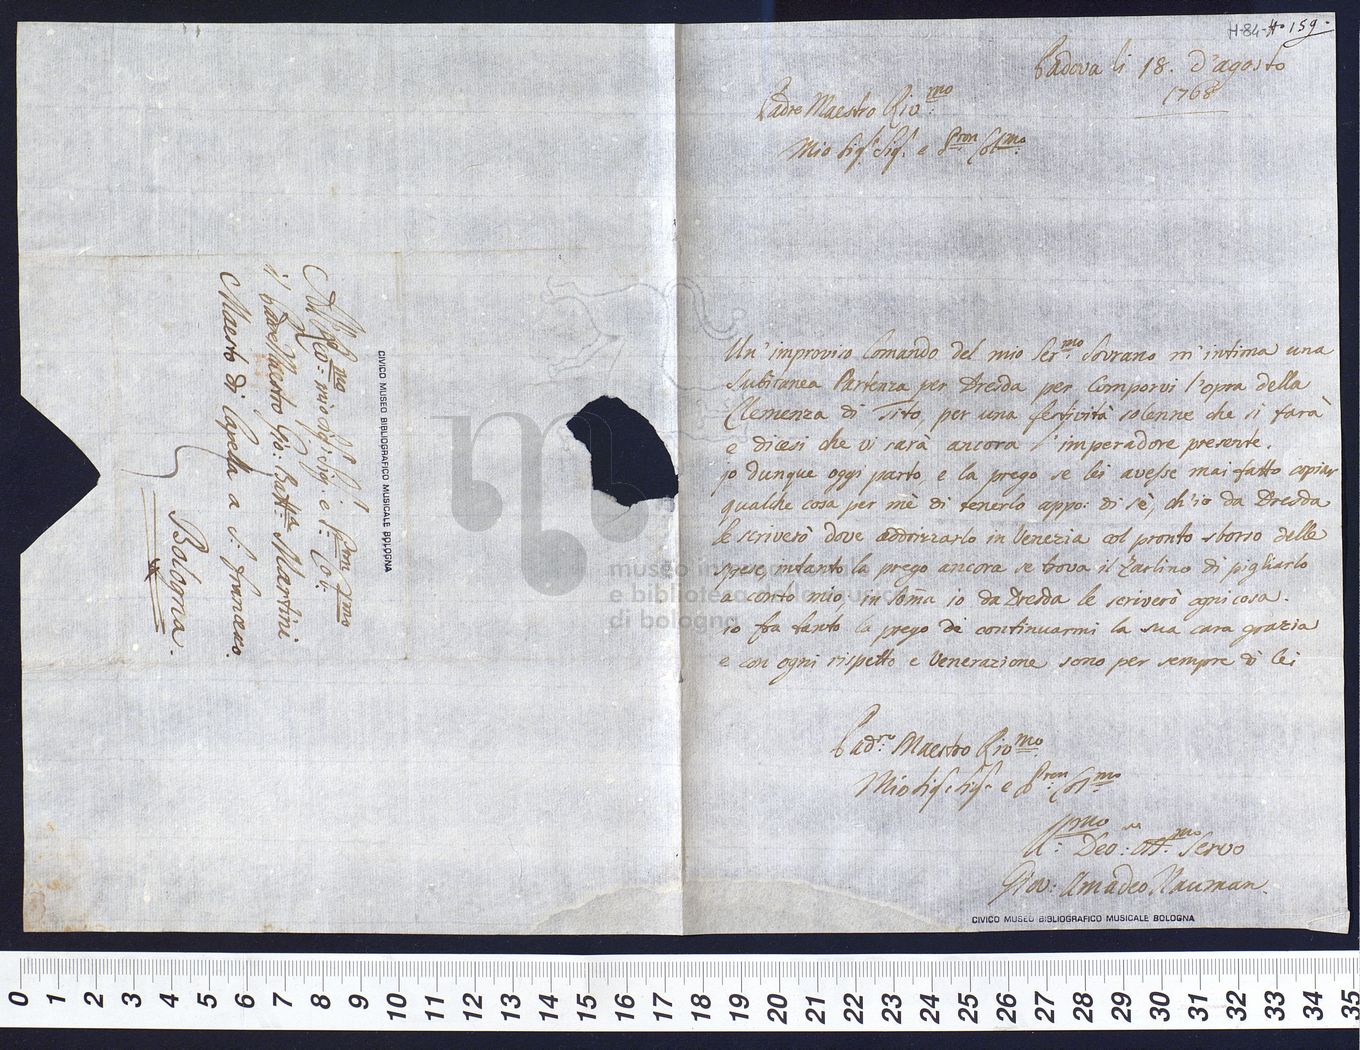 H-84-H. 159.
Padova li 18. d'agosto
1768
Padre Maestro Riv:mo
Mio Sig:r Sig:r e Pron Col:mo
Un' improviso Comando del mio Ser:mo Sovrano m'intima una
subitanea Partenza per Dresda per Comporvi l'opra della
Clemenza di Tito, per una festività solenne che si farà
e dicesi che vi sarà ancora l'imperadore presente.
jo dunque oggi parto, e la prego se lei avesse mai fatto copiar
qualche cosa per mè di tenerlo appo: di sè, ch'io da Dresda
le scriverò dove addrizzarlo in Venezia col pronto sborso delle
spese, intanto la prego ancora se trova il Zarlino di pigliarlo
a conto mio, in soma io da Dresda le scriverò ogni cosa.
io fra tanto la prego de continuarmi la sua cara grazia
e con ogni rispetto e Venerazione sono per sempre di lei
Maestro Riv:mo
Mio Sig:r Sig:r e Pron Col:mo
Servo
Giov: Amadeo Nauman.
CIVICO MUSEO BIBLIOGRAFICO MUSICALE BOLOGNA
mio Sig:r Sig:r e Pron Col:
il Padre Maestro Gio: Batt:a Martini
Maestro di Capella a S. francesco.
Bologna.
CIVICO MUSEO BIBLIOGRAFICO MUSICALE BOLOGNA
museo internazionale
e biblioteca della musica
di bologna
0 1 2 3 4 5 6 7 8 9 10 11 12 13 14 15 16 17 18 19 20 21 22 23 24 25 26 27 28 29 30 31 32 33 34 35